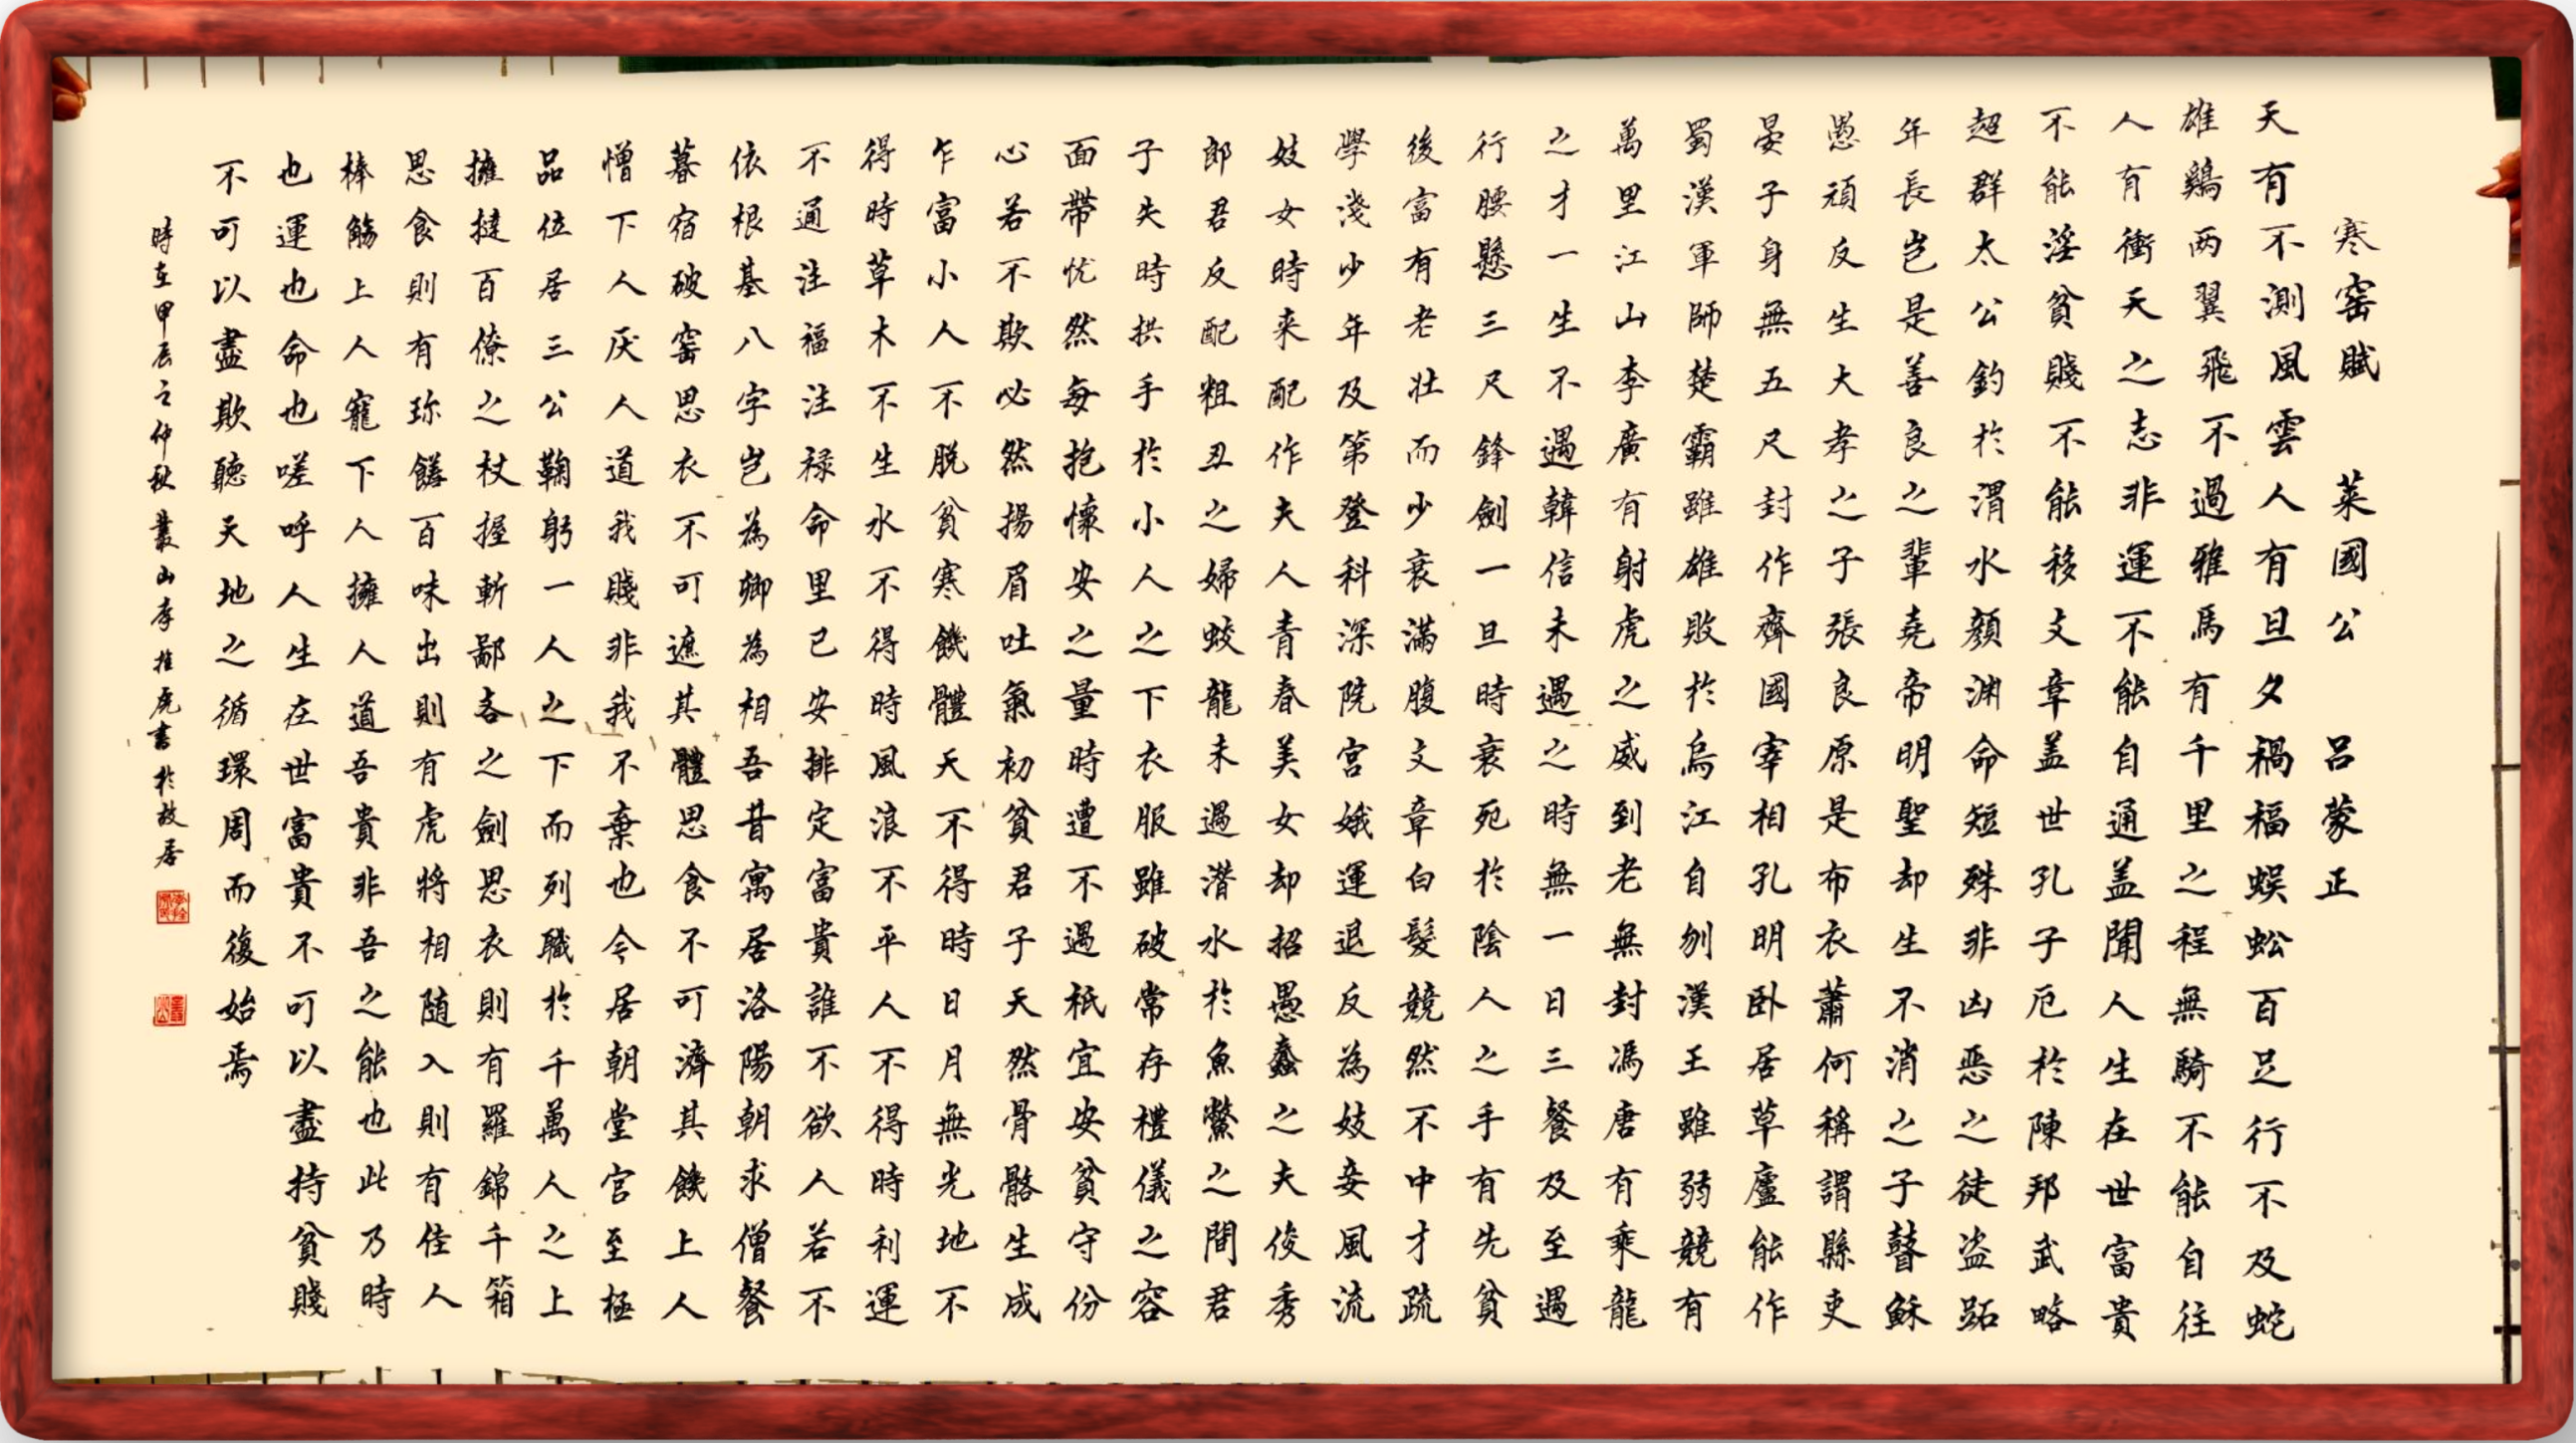 寒窑賦 菜國公 吕蒙正
天有不測風雲人有旦夕禍福蜈蚣百足行不及蛇
雄鷄两翼飛不過雅馬有千里之程無騎不能自往
人有衝天之志非運不能自通盖聞人生在世富貴
不能淫貧賤不能移文章盖世孔子厄於陳邦武略
超群太公釣於渭水顏渊命短殊非凶恶之徒盗跖
年長岂是善良之輩堯帝明聖却生不消之子瞽穌
愚頑反生大孝之子張良原是布衣蕭何稱謂縣吏
晏子身無五尺封作齊國宰相孔明卧居草廬能作
蜀漢軍師楚霸雖雄敗於烏江自刎漢王雖弱競有
萬里江山李廣有射虎之威到老無封馮唐有乘龍
之才一生不遇韓信未遇之時無一日三餐及至遇
行腰懸三尺鋒劍一旦時衰死於陰人之手有先貧
後富有老壮而少衰滿腹文章白髮競然不中才疏
學淺少年及第登科深院宮娥運退反為妓妾風流
妓女時来配作夫人青春美女却招愚蠢之夫俊秀
郎君反配粗丑之婦蛟龍未遇潜水於魚鱉之間君
子失時拱手於小人之下衣服雖破常存禮儀之容
面帶忧然每抱懷安之量時遭不遇衹宜安貧守份
心若不欺必然揚眉吐氣初貧君子天然骨骼生成
乍富小人不脱貧寒饑體天不得時日月無光地不
得時草木不生水不得時風浪不平人不得時利運
不通注福注禄命里已安排定富貴誰不欲人若不
依根基八字岂為卿為相吾昔寓居洛陽朝求僧餐
暮宿破窑思衣不可遮其體思食不可濟其饑上人
憎下人厌人道我賤非我不棄也今居朝堂官至極
品位居三公鞠躬一人之下而列職於千萬人之上
擁撻百僚之杖握斬鄙吝之劍思衣則有羅錦千箱
思食則有珎饈百味出則有虎將相随入則有佳人
棒觞上人寵下人擁人道吾貴非吾之能也此乃時
也運也命也嗟呼人生在世富貴不可以盡持貧賤
不可以盡欺聽天地之循環周而復始焉
時在甲辰之仲秋叢山李虎書於故居